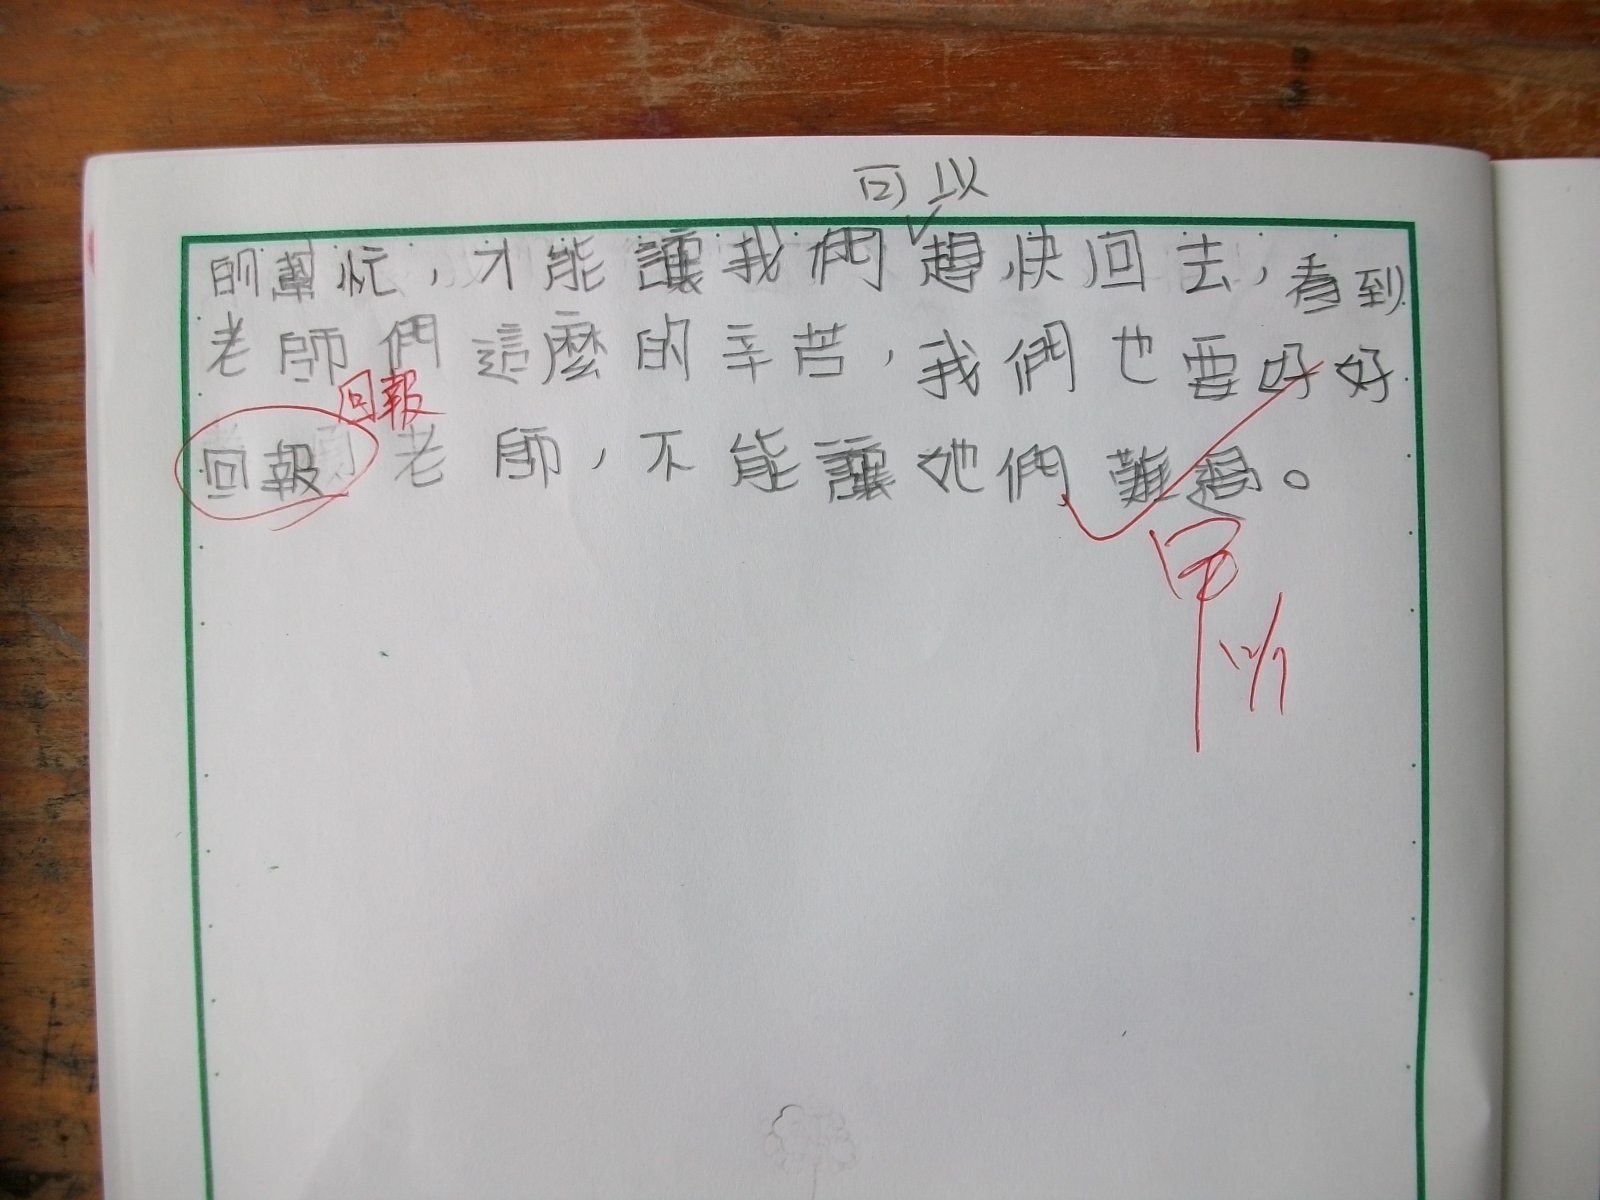 可以
的幫忙，才能讓我們趕快回去，看到
老師們這麼的辛苦，我們也要好好
回報
回報老師，不能讓她們難過。
甲